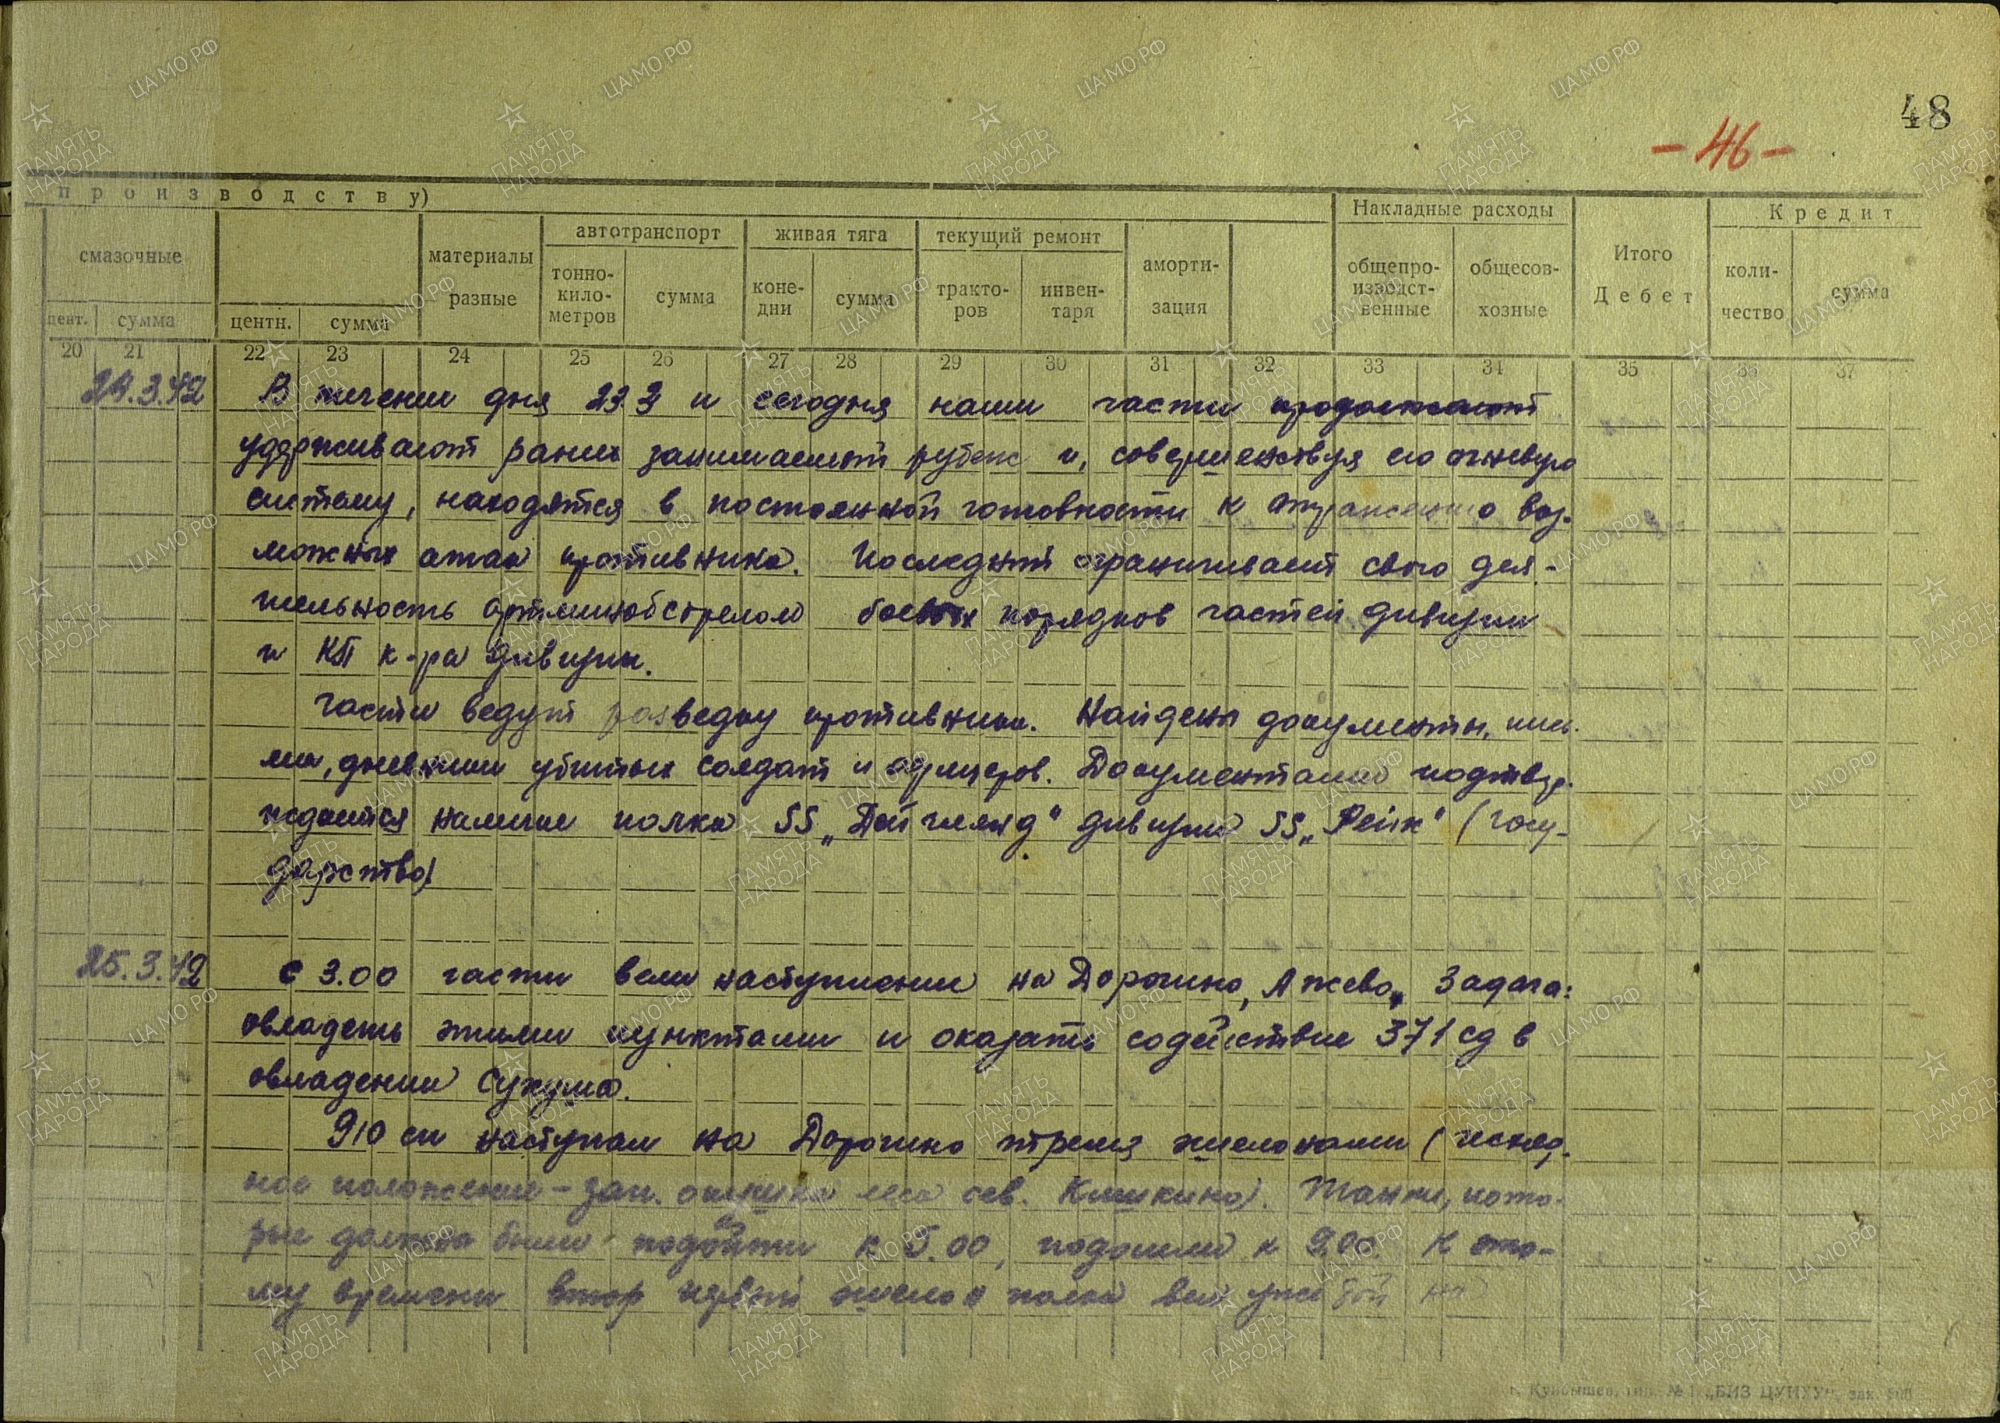 48
- 46 -
производству)
Накладные расходы
Кредит
смазочные
материалы
разные
автотранспорт
живая тяга
текущий ремонт
аморти-
зация
Итого
Дебет
тонно-
кило-
метров
сумма
коне-
дни
сумма
тракто-
ров
инвен-
таря
общепро-
изводст-
венные
общесов-
хозные
коли-
чество
сумма
цент. сумма центн. сумма
20 21 22 23 24 25 26 27 28 29 30 31 32 33 34 35 36 37
24.3.42 В течении дня 23.3 и сегодня наши части продолжают
удерживают ранее занимаемый рубеж и, совершенствуя его огневую
систему, находятся в постоянной готовности к отражению воз-
можных атак противника. Последний ограничивает свою дея-
тельность артминобстрелом боевых порядков частей дивизии
и КП к-ра дивизии.
Части ведут разведку противника. Найдены документы, пись-
ма, дневники убитых солдат и офицеров. Документами подтвер-
ждается наличие полка SS „Дойчланд" дивизии SS „Рейх" (госу-
дарство)
25.3.42 С 3.00 части вели наступление на Дорогино, Ажево. Задача:
овладеть этими пунктами и оказать содействие 371 сд в
овладении Сухуша.
910 сп наступал на Дорогино тремя эшелонами (исход-
ное положение - зап. опушка леса сев. Клишкино). Танки, кото-
рые должны были подойти к 5.00, подошли к 9.00. К это-
му времени первый эшелон полка вел уже бой на
г. Куйбышев, тип. № 1 „БИЗ ЦУНХУ", зак.
ПАМЯТЬ НАРОДА
ЦАМО.РФ